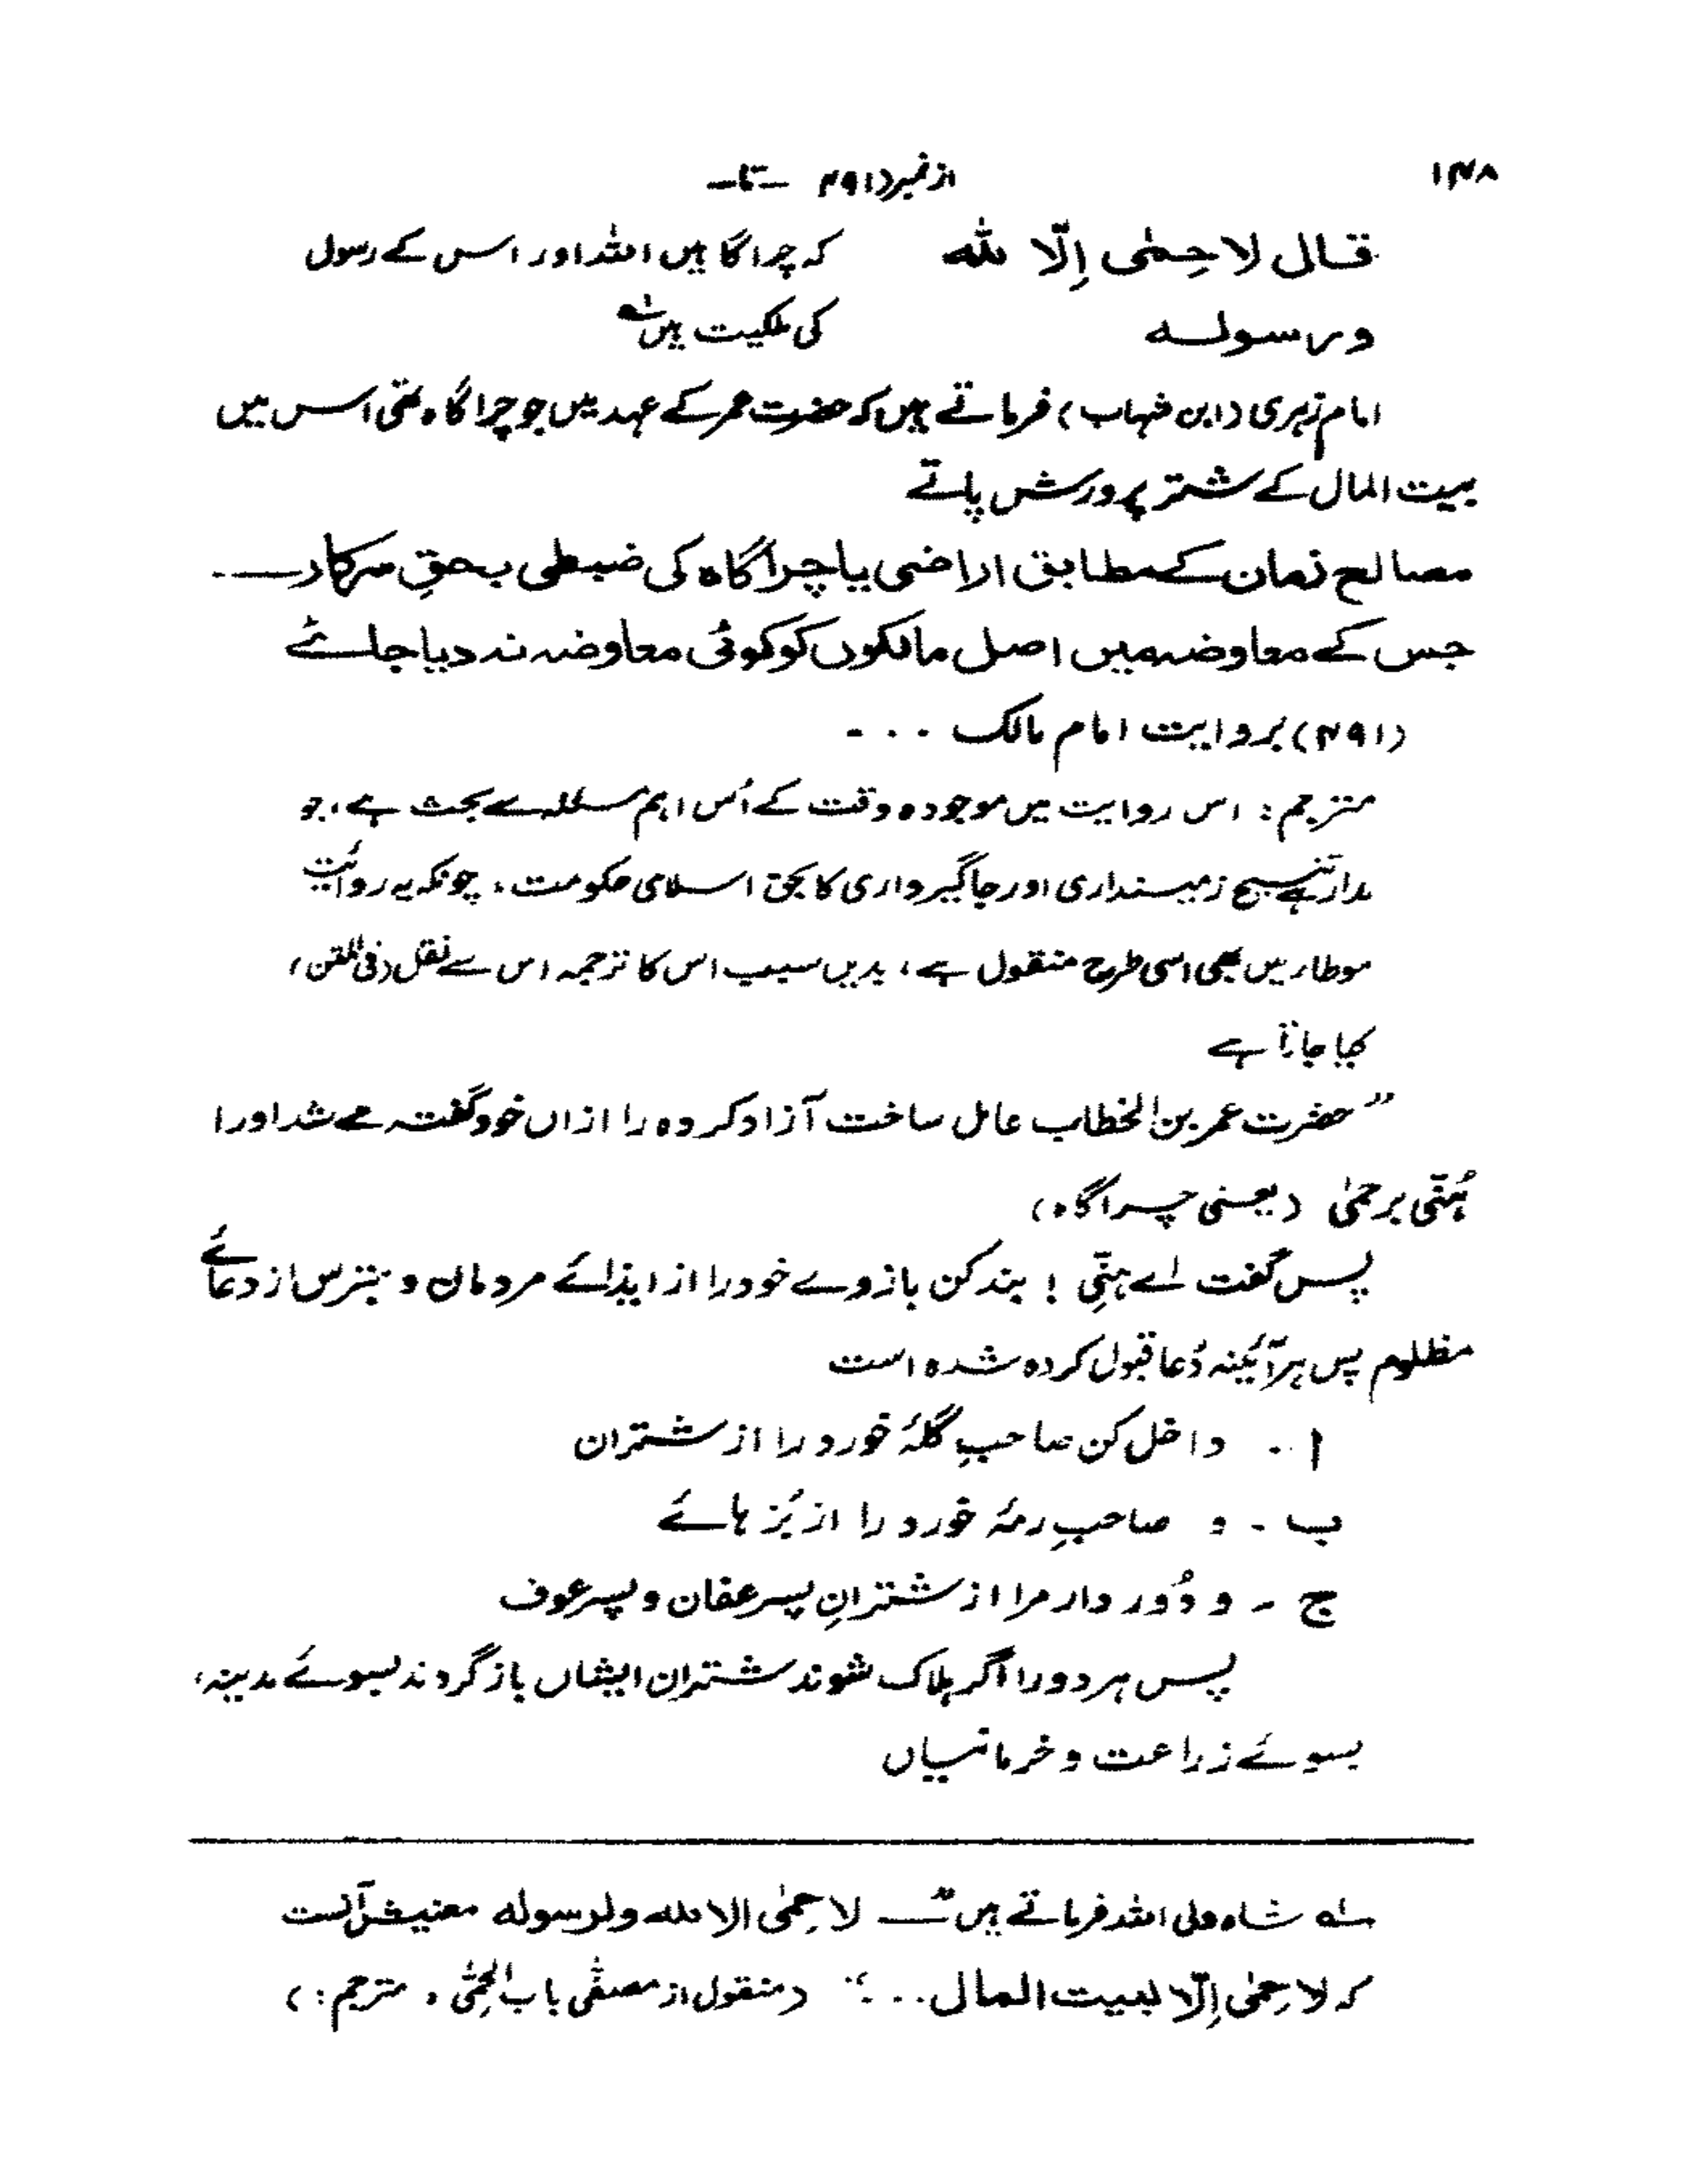 ۱۴۸ از نمبر (۴۹۱ — تا —
قال لا حِمٰی اِلّا للہ کہ چراگاہیں اللہ اور اس کے رسول
ورسولہ کی ملکیت ہیں ؎۱
امام زہری (ابن شہاب) فرماتے ہیں کہ حضرت عمر کے عہد میں جو چراگاہ تھی اس میں
بیت المال کے شتر پرورش پاتے
مصالح زمان کے مطابق اراضی یا چراگاہ کی ضبطی بحقِ سرکار ــــ
جس کے معاوضہ میں اصل مالکوں کو کوئی معاوضہ نہ دیا جائے
(۴۹۱) بروایت امام مالک ۔ ۔ ۔ ۔
مترجم: اس روایت میں موجودہ وقت کے اُس اہم مسئلہ سے بحث ہے، جو
مدار ہے تنسیخ زمینداری اور جاگیرداری کا بحق اسلامی حکومت، چونکہ یہ روائیت
موطا میں بھی اسی طرح منقول ہے، بدیں سبب اس کا ترجمہ اس سے نقل (فی المتن)
کیا جاتا ہے
” حضرت عمر بن الخطاب عامل ساخت آزاد کردہ را ازاں خود گفتہ مے شد او را
ہُنَّی بر حمیٰ (یعنی چراگاہ)
پس گفت اے ہنّیِ ! بند کن بازوے خود را از ایذائے مردمان و بترس از دعائے
مظلوم پس ہرآئینہ دُعا قبول کردہ شدہ است
ا ۔۔ داخل کن صاحبِ گلۂ خورد را از شتران
ب ۔ و صاحبِ رمۂ خورد را از بُز ہائے
ج ۔ و دُور دار مرا از شترانِ پسر عفان و پسر عوف
پس ہر دو را اگر ہلاک شوند شتران ایشاں باز گردند بسوئے مدینہ،
بسوئے زراعت و خرماتیاں
؎۱ شاہ ولی اللہ فرماتے ہیں ”ــــ لا حِمٰی الا للہ ولرسولہ معنیش آنست
کہ لا حِمٰی اِلّا لبیت المال . . . “ (منقول از مصفّٰی باب الحِمٰی ، مترجم: )